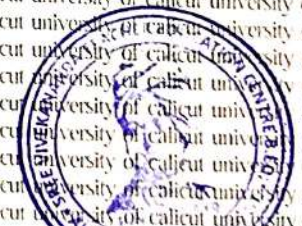 cut university of calicut university
cut university of calicut university
cut university of calicut university
cut university of calicut university
cut university of calicut university
cut university of calicut university
cut university of calicut university
cut university of calicut university
cut university of calicut university
SREE VIVEKANANDA
CENTRE B.ED